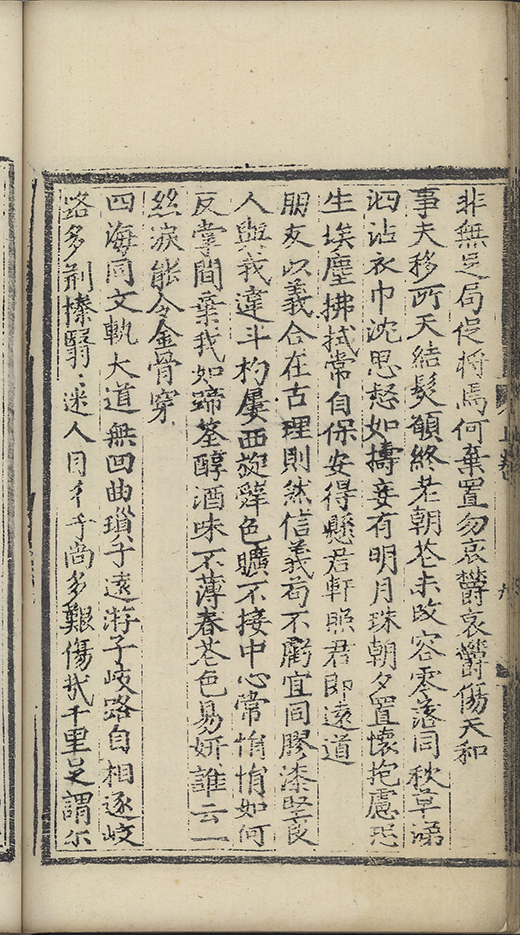 非無足局促將焉何棄置勿哀欝哀欝傷天和
事夫移所天結髮願終老朝荅未改容零落同秋草涕
泗沾衣巾沈思怒如擣妾有明月珠朝夕置懷抱慮恐
生埃塵拂拭常自保安得懸君軒照君即遠道
朋友以義合在古理則然信義苟不虧宜同膠漆堅良
人與義違斗杓屢西旋辭色曠不接中心常悁悁如何
反掌間棄我如蹄筌醇酒味不薄春荅色易妍誰云一
丝淚能令金骨穿
四海同文軌大道無回曲瑣子遠游子岐路自相逐岐
路多荆榛翳迷人目千尚多艱傷哉千里足謂尔